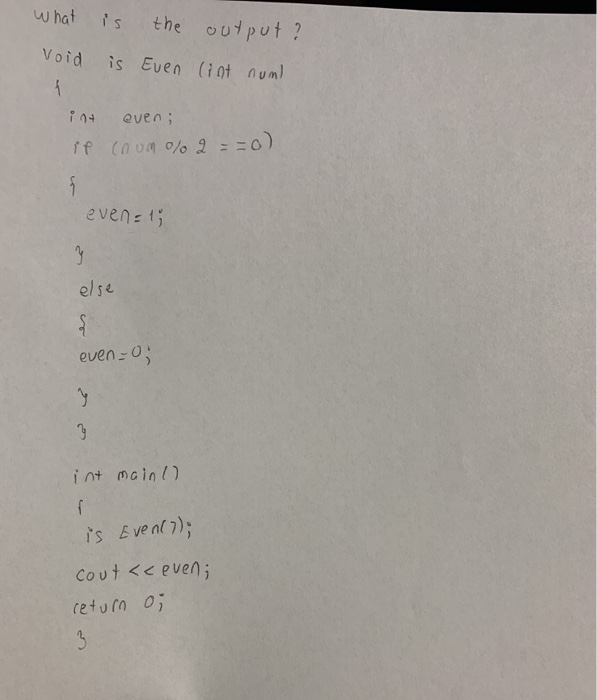 what is the output?
Void is Even (int num)
{
int even;
if (num % 2 = =0)
{
even=1;
}
else
{
even=0;
}
}
int main()
{
is Even(7);
cout << even;
return 0;
}